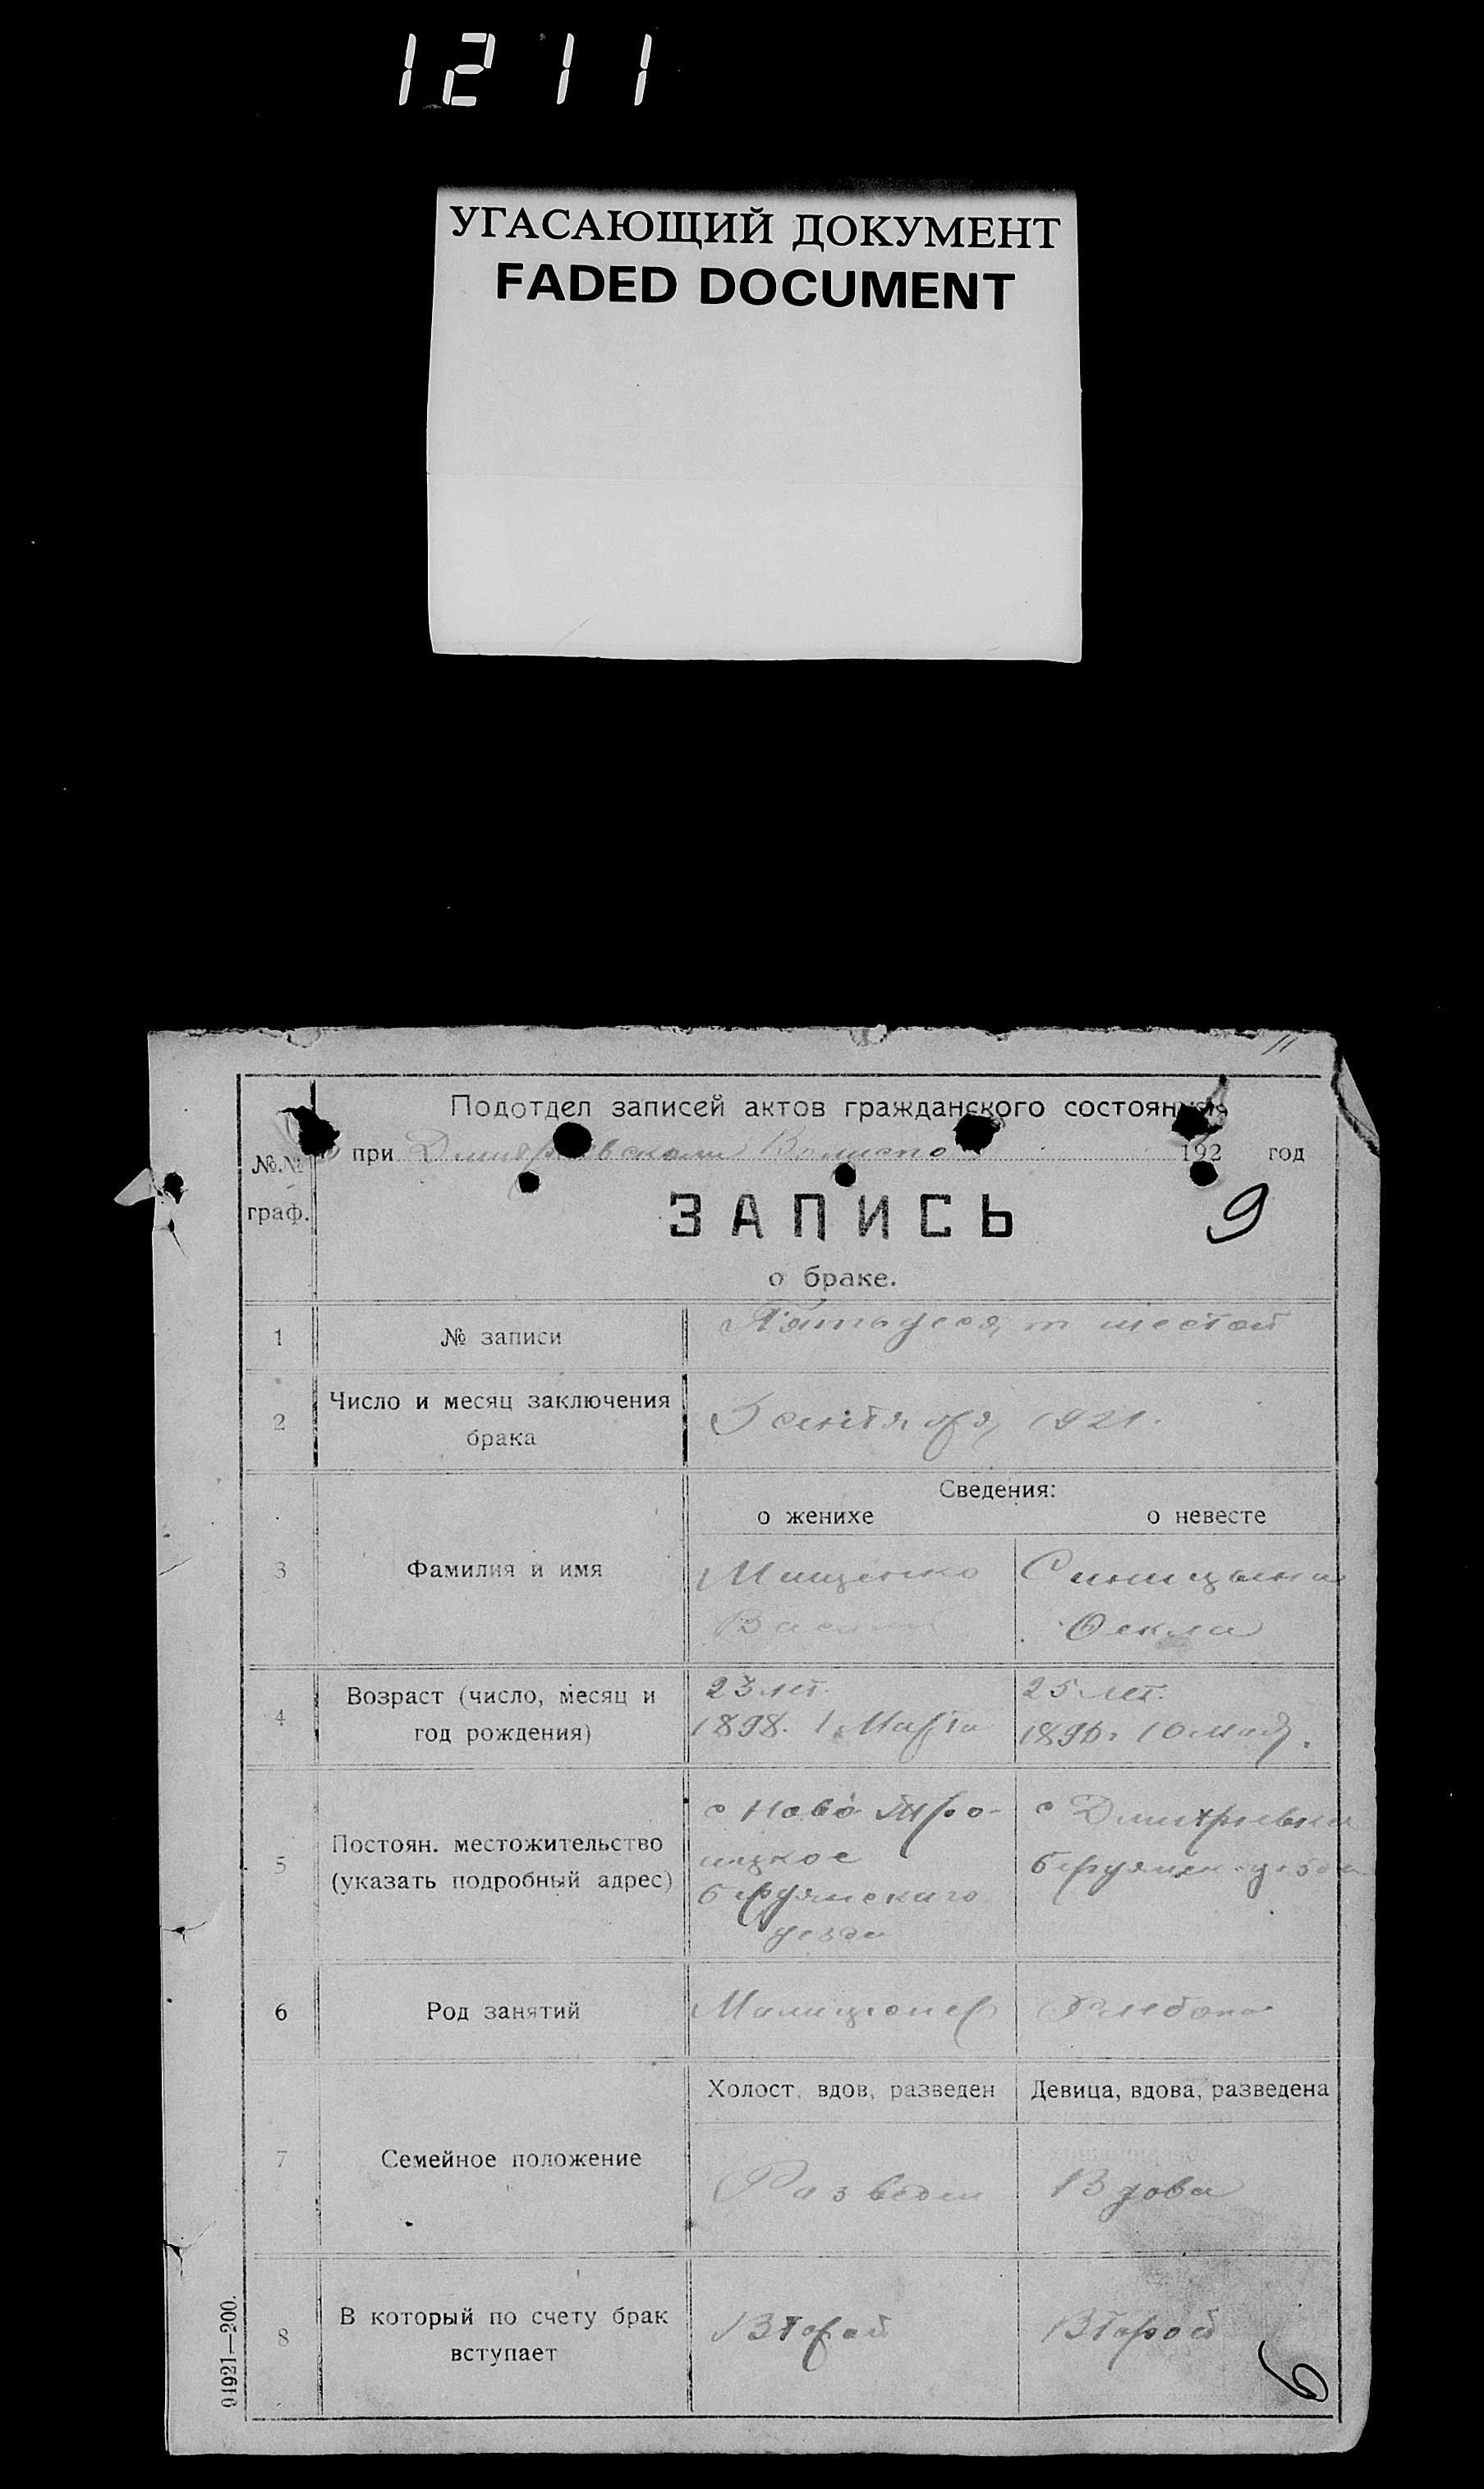 1211
УГАСАЮЩИЙ ДОКУМЕНТ
FADED DOCUMENT
11
Подотдел записей актов гражданского состояния
при Волиспо 192 год
№.№
граф.
ЗАПИСЬ
9
о браке.
1 № записи Пятьдесят шестой
2 Число и месяц заключения
брака
сентября 1921.
Сведения:
о женихе о невесте
3 Фамилия и имя
Мищенко Синицына
Василий Фекла
4 Возраст (число, месяц и
год рождения)
23 лет. 25 лет.
1898. 1 Марта 1896. 10 мая.
5 Постоян. местожительство
(указать подробный адрес)
с Ново Тро-
ицкое
бердянскаго
уезда
с Дмитриевка
бердянск уезда
6 Род занятий Милиционер
Холост, вдов, разведен Девица, вдова, разведена
7 Семейное положение
Разведен Вдова
8 В который по счету брак
вступает
Второй Второй
6
91921—200.